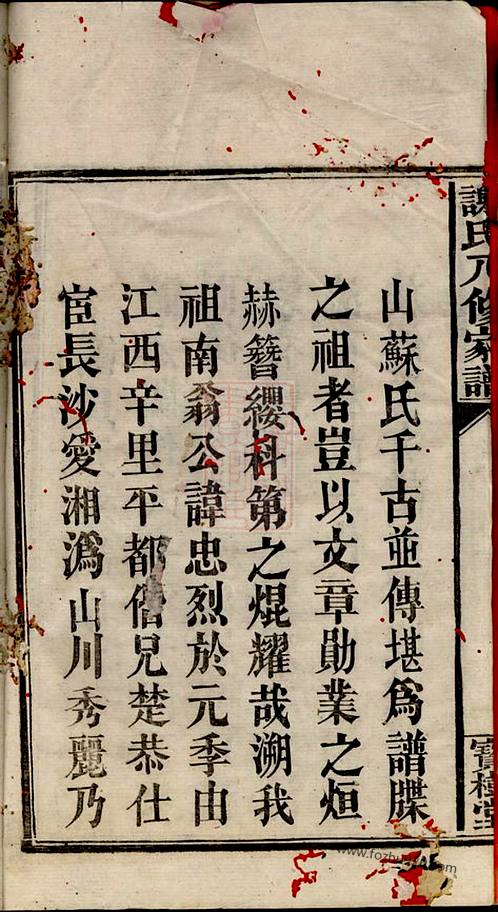 謝氏八修家譜
寶樹堂
山蘇氏千古並傳堪為譜牒
之祖者豈以文章勛業之烜
赫簪纓科第之焜耀哉溯我
祖南翁公諱忠烈於元季由
江西辛里平都偕兄楚恭仕
宦長沙愛湘溈山川秀麗乃